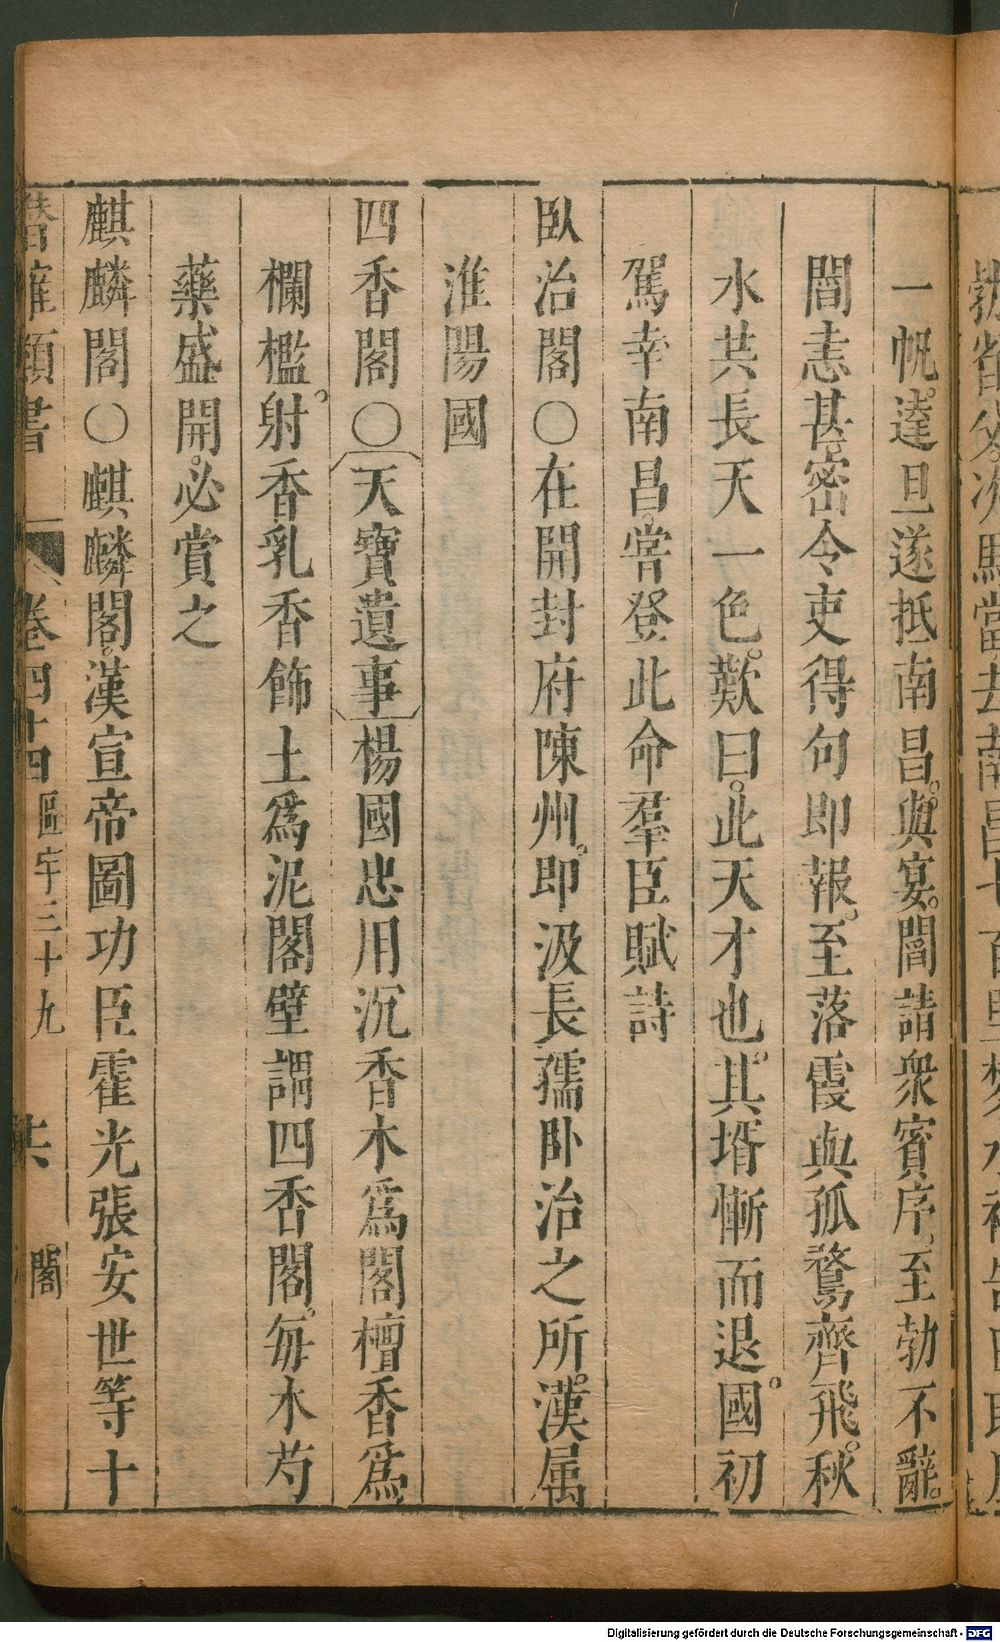 一帆。達旦遂抵南昌。與宴。閻請衆賓序。至勃不辭。
閻恚甚。密令吏得句即報。至落霞與孤鶩齊飛。秋
水共長天一色。歎曰。此天才也。其壻慚而退。國初
駕幸南昌。嘗登此命羣臣賦詩
臥治閣〇在開封府陳州。即汲長孺卧治之所。漢属
淮陽國
四香閣〇〔天寶遺事〕楊國忠用沉香木爲閣檀香爲
欄檻。射香乳香飾土爲泥閣壁謂四香閣。每木芍
藥盛開。必賞之
麒麟閣〇麒麟閣。漢宣帝圖功臣霍光張安世等十
潛確類書 卷四十四 區宇三十九 共 閣
Digitalisierung gefördert durch die Deutsche Forschungsgemeinschaft - DFG